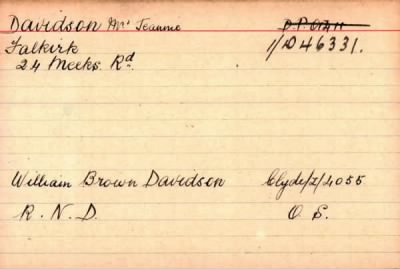 Davidson Mrs Jeannie
Falkirk 1/D46331.
24 Meeks Rd
William Brown Davidson Clyde/Z/4055
R. N. D. O. S.